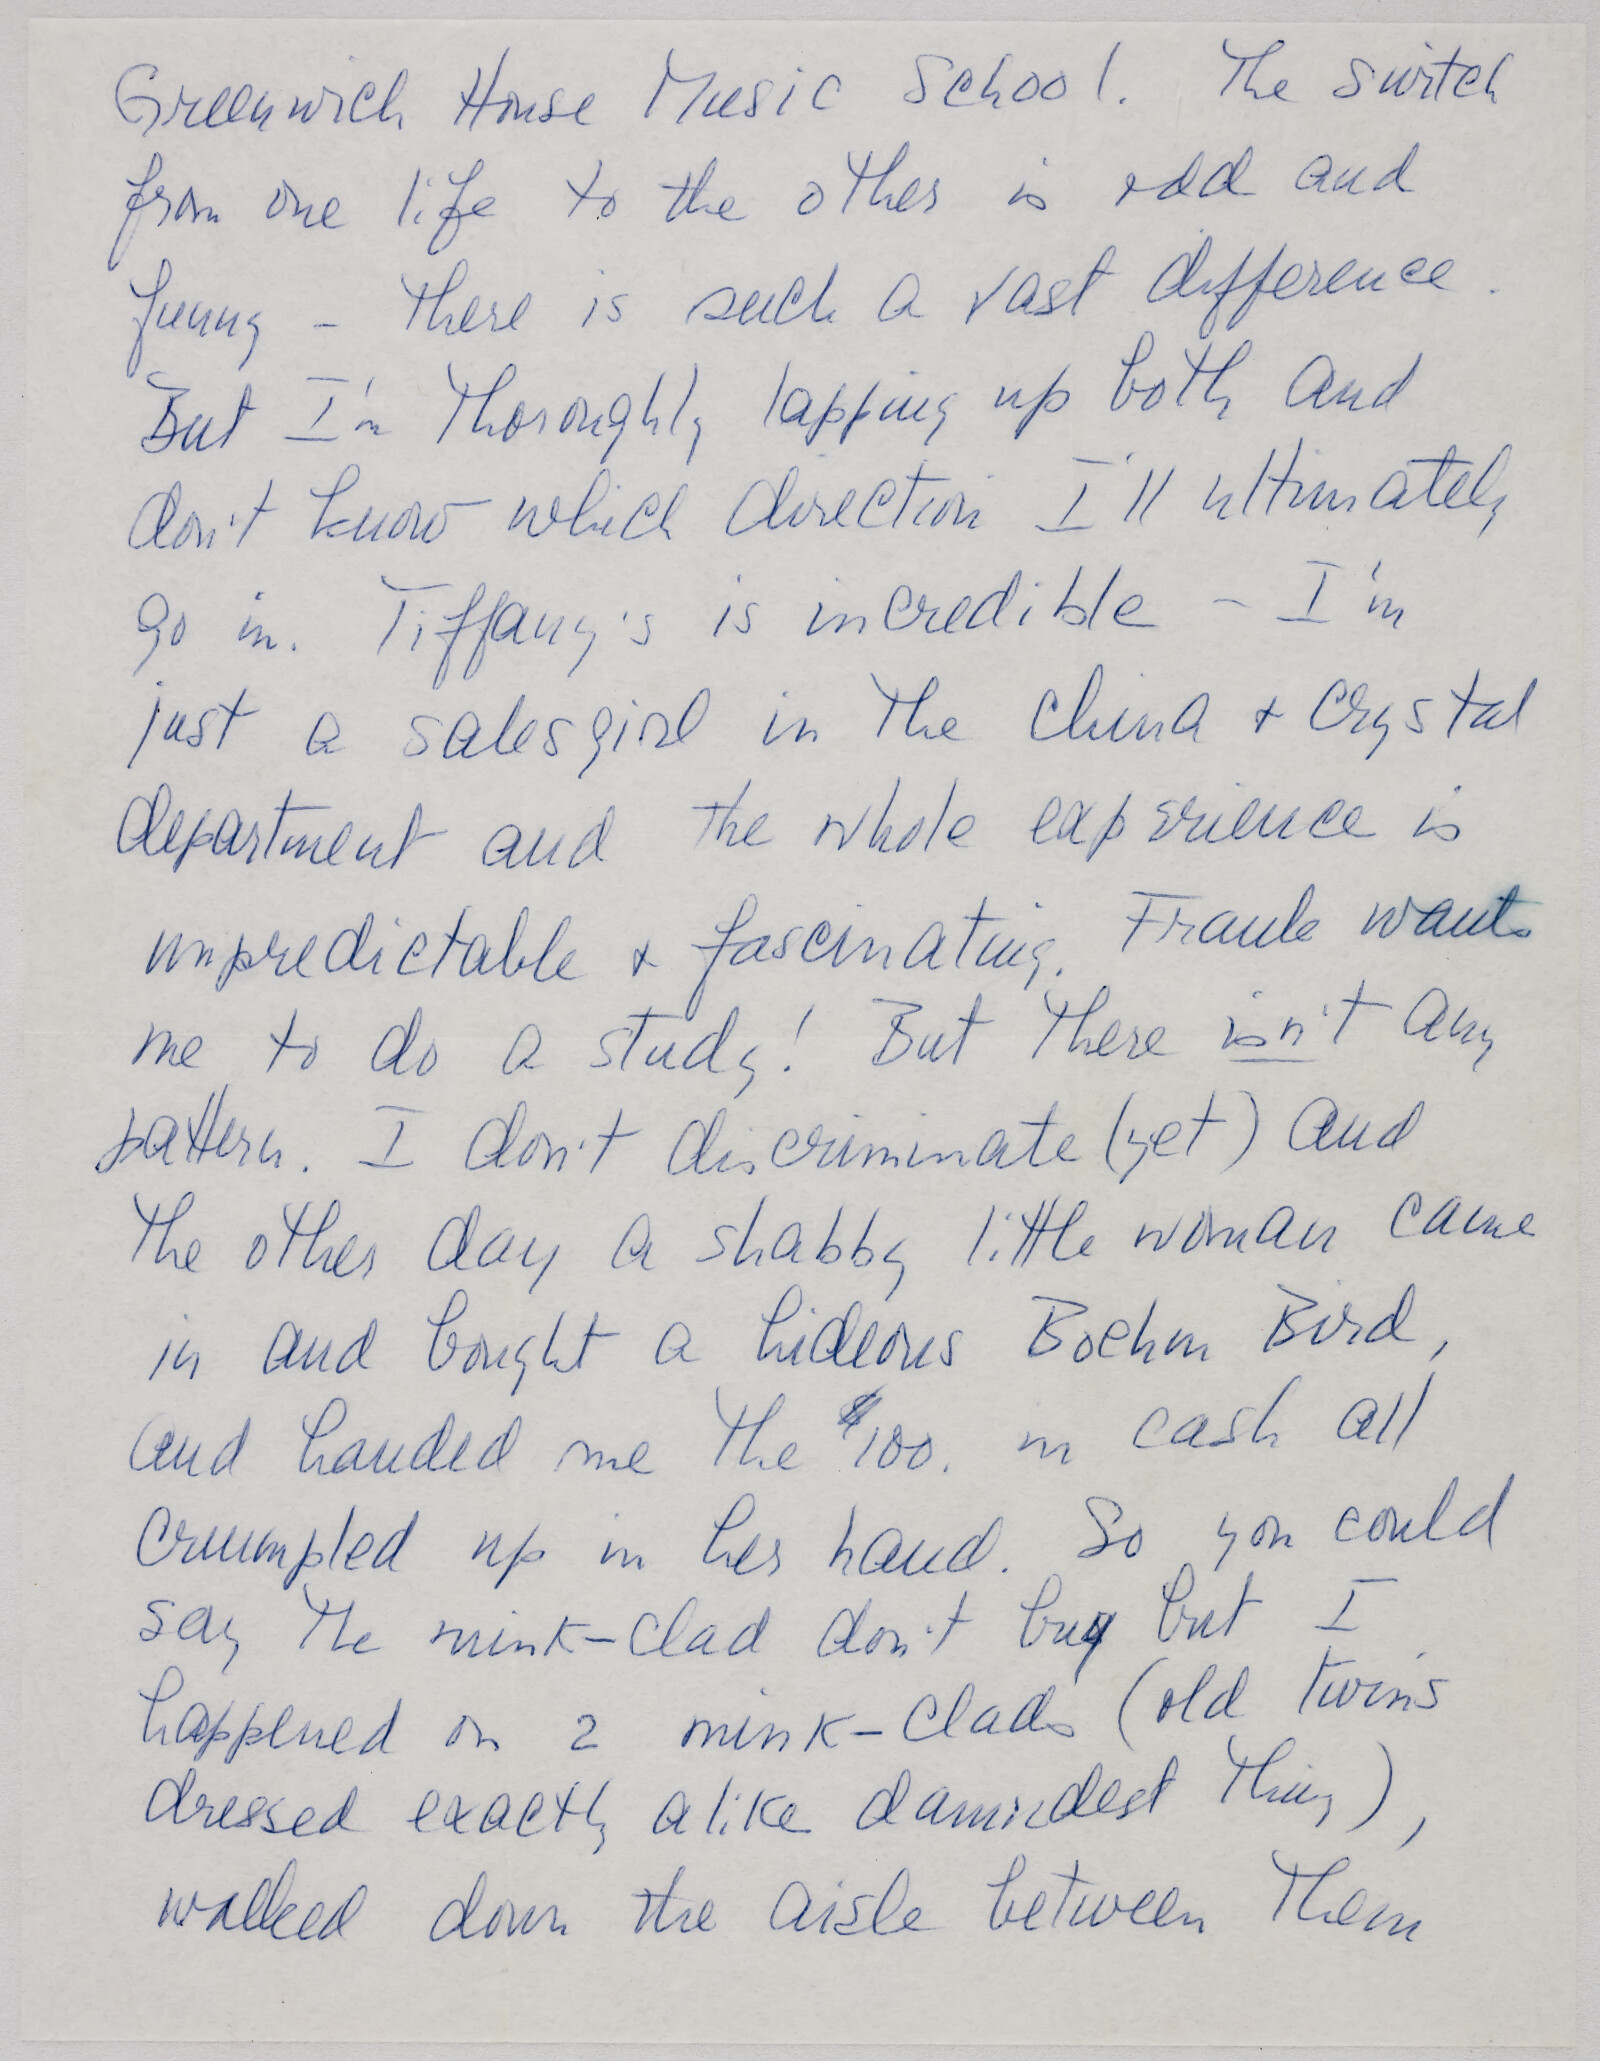 Greenwich House Music School. The switch
from one life to the other is odd and
funny - there is such a vast difference.
But I'm thoroughly lapping up both and
don't know which direction I'll ultimately
go in. Tiffany's is incredible - I'm
just a salesgirl in the china + crystal
department and the whole experience is
unpredictable + fascinating. Frank wants
me to do a study! But there isn't any
pattern. I don't discriminate (yet) and
the other day a shabby little woman came
in and bought a hideous Boehm Bird,
and handed me the $100. in cash all
crumpled up in her hand. So you could
say the mink-clad don't buy but I
happened on 2 mink-clads (old twins
dressed exactly alike damndest thing),
walked down the aisle between them